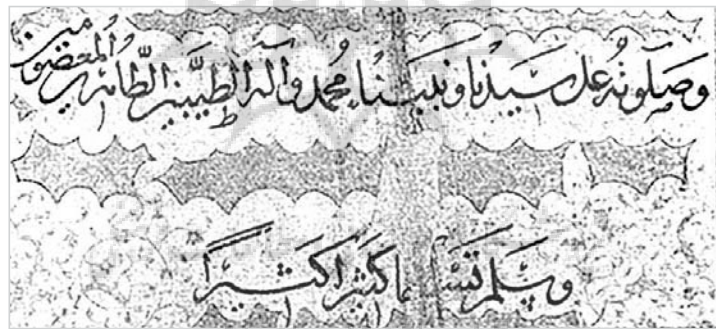 وصلوته علی سیدنا ونبینا محمد وآله الطیبین الطاهرین المعصومین
وسلم تسلیما کثیرا کثیرا